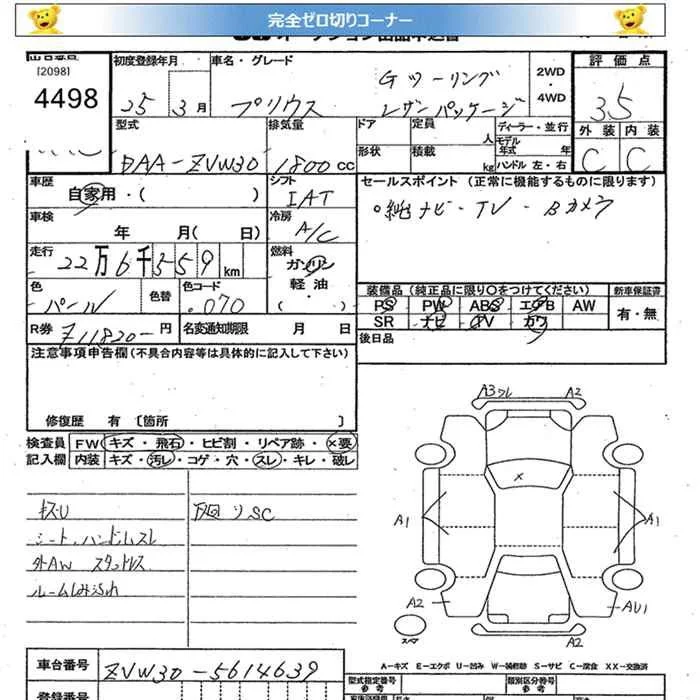 完全ゼロ切りコーナー
[2098]
4498
初度登録年月
25 3月
車名・グレード
プリウス
Gツーリング
レザーパッケージ
2WD
・
4WD
評価点
3.5
外装 内装
C C
型式
DAA-ZVW30
排気量
1800cc
ドア
定員 人
形状
積載 kg
ディーラー・並行
モデル年式 年
ハンドル 左・右
車歴
自家用・( )
シフト
IAT
車検
年 月( 日)
冷房
A/C
走行
22万6千559km
燃料
ガソリン
軽油・
( )
色
パール
色替
色コード
070
R券
11820-円
名変通知期限 月 日
セールスポイント (正常に機能するものに限ります)
○純ナビ・TV・Bカメラ
装備品(純正品に限り○をつけてください)
PS PW ABS エアB AW
SR ナビ TV カワ
新車保証書
有・無
後日品
注意事項申告欄(不具合内容等は具体的に記入して下さい)
修復歴 有 〔箇所 〕
検査員
記入欄
FW キズ・飛石・ヒビ割・リペア跡・×要
内装 キズ・汚レ・コゲ・穴・スレ・キレ・破レ
キズU
シート、ハンドルスレ
外AW スタッドレス
ルームしみ汚れ
下回りSC
A3ワレ
A2
×
A1
A1
A2
AU1
スマ
A2
A-キズ E-エクボ U-凹み W-補修跡 S-サビ C-腐食 XX-交換済
車台番号
ZVW30-5614639
登録番号
型式指定番号
参考
類別区分番号
参考